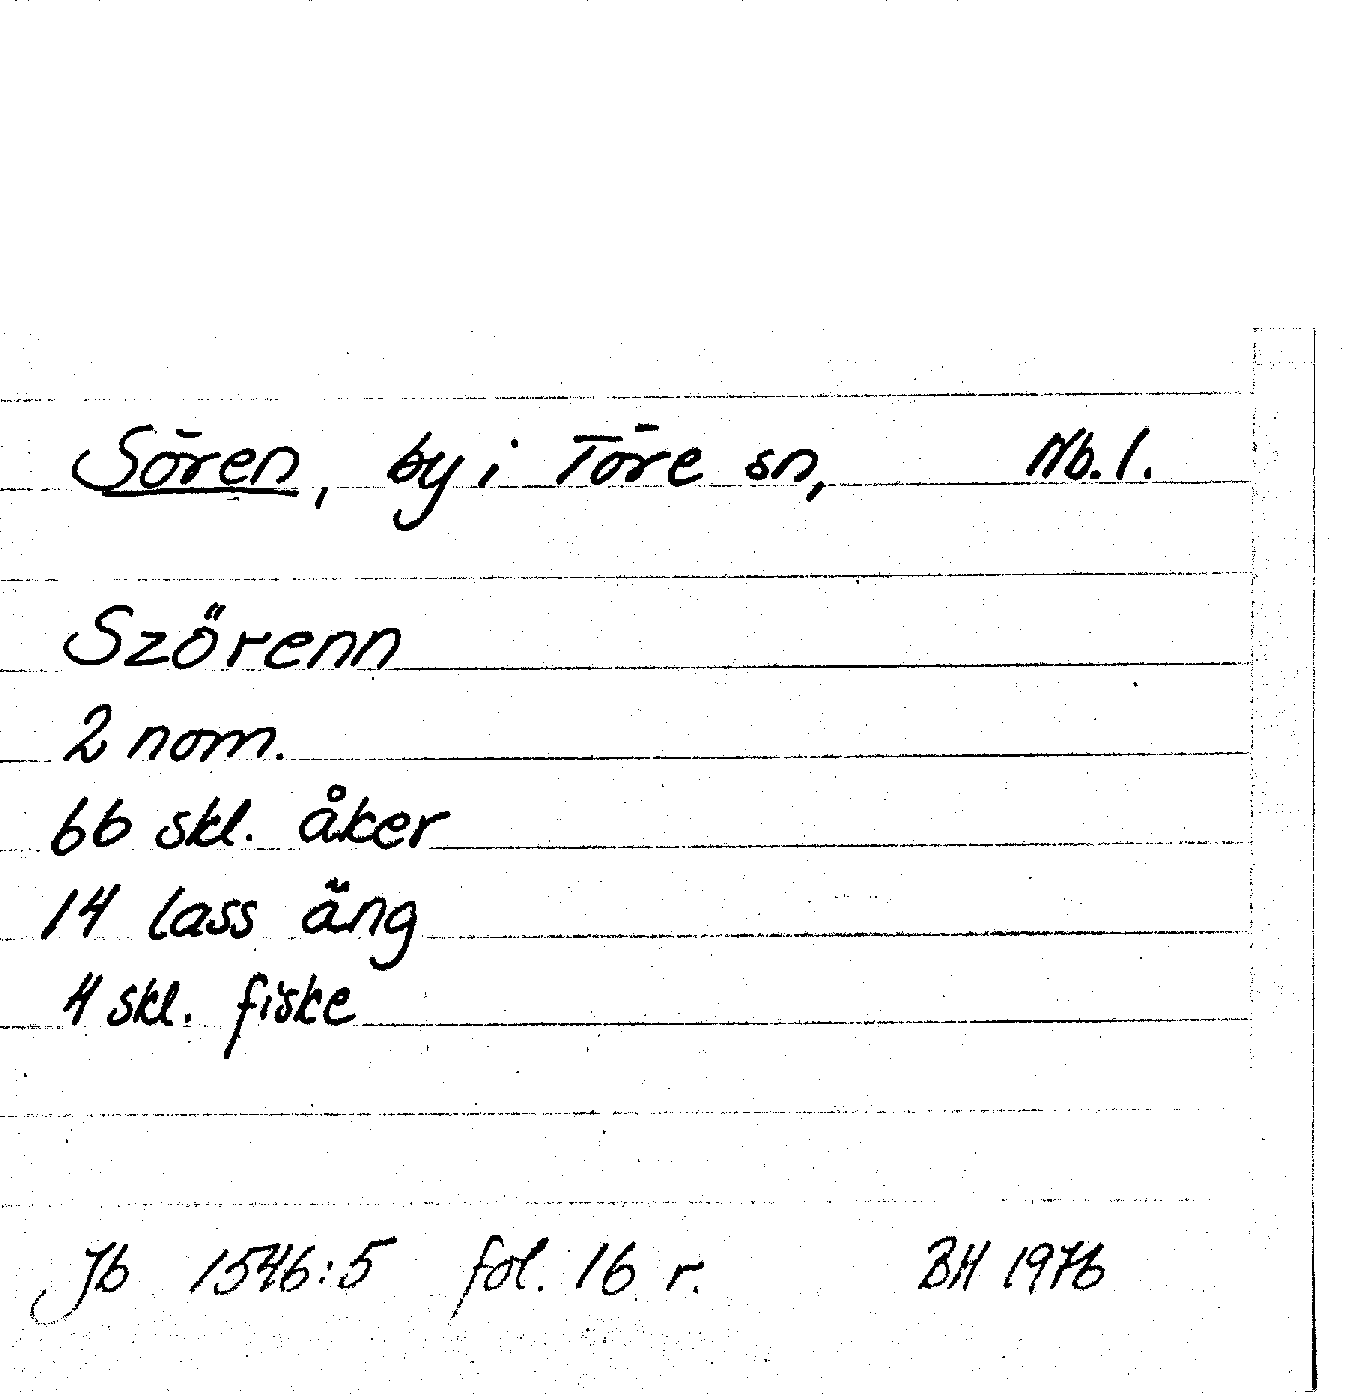 Sören, by i Töre sn, Nb.l.
Szörenn
2 nom.
66 skl. åker
14 lass äng
4 skl. fiske
Jb 1546:5 fol. 16 r. BH 1976